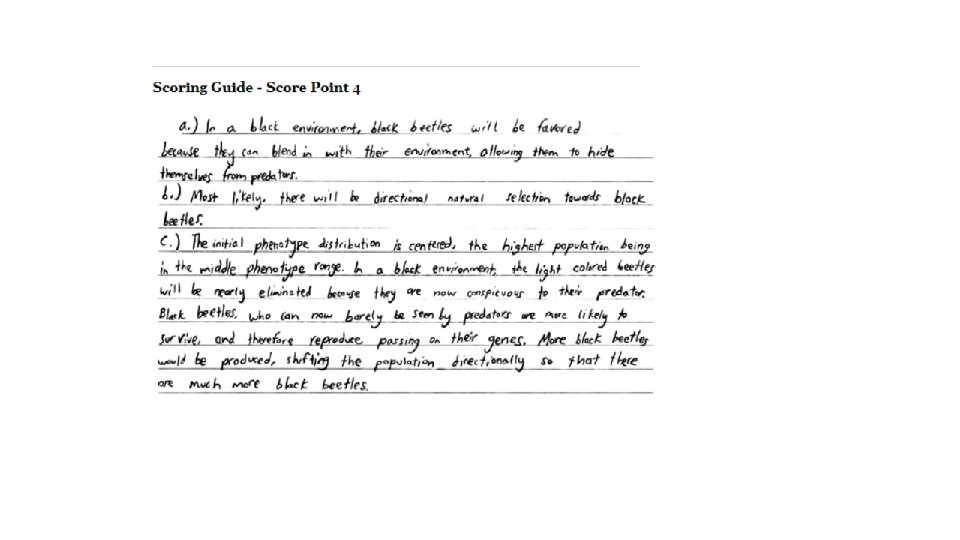 Scoring Guide - Score Point 4
a.) In a black environment, black beetles will be favored
because they can blend in with their environment, allowing them to hide
themselves from predators.
b.) Most likely, there will be directional natural selection towards black
beetles.
C.) The initial phenotype distribution is centered, the highest population being
in the middle phenotype range. In a black environment, the light colored beetles
will be nearly eliminated because they are now conspicuous to their predator.
Black beetles, who can now barely be seen by predators are more likely to
survive, and therefore reproduce passing on their genes. More black beetles
would be produced, shifting the population directionally so that there
are much more black beetles.